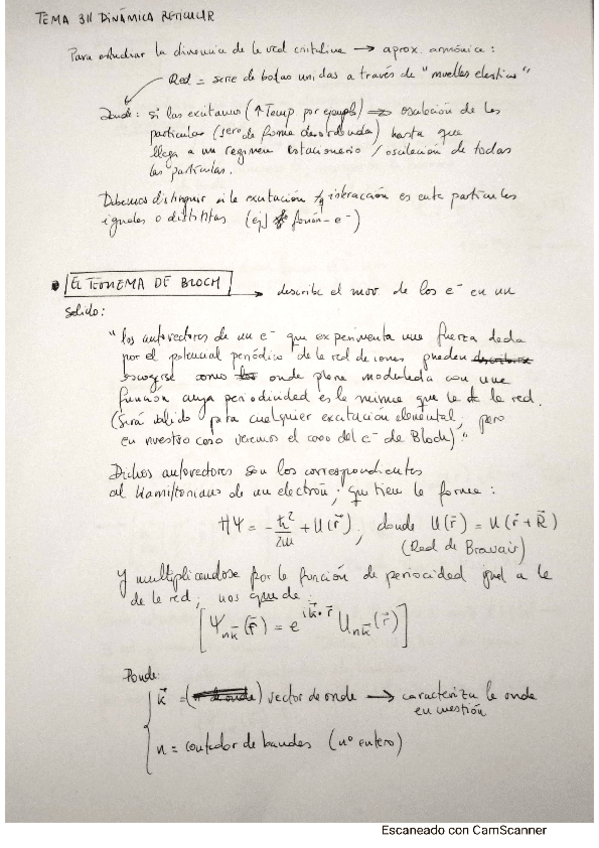 TEMA 3|| DINÁMICA RETICULAR
Para estudiar la dinámica de la red cristalina → aprox. armónica:
Red = serie de bolas unidas a través de "muelles elásticos"
Donde: si las excitamos (↑Temp por ejemplo) ⇒ oscilación de las
partículas (será de forma desordenada) hasta que
llega a un régimen estacionario / oscilación de todas
las partículas.
Debemos distinguir si la excitación / interacción es entre partículas
iguales o distintas (ej) fonón - e⁻)
• EL TEOREMA DE BLOCH → describe el mov de los e⁻ en un
sólido:
"los autovectores de un e⁻ que experimenta una fuerza dada
por el potencial periódico de la red de iones pueden
escogerse como onda plana modulada con una
función cuya periodicidad es la misma que la de la red.
(Será válido para cualquier excitación elemental, pero
en nuestro caso veremos el caso del e⁻ de Bloch)."
Dichos autovectores son los correspondientes
al Hamiltoniano de un electrón; que tiene la forma:
HΨ = -ħ²/2m + U(r⃗), donde U(r⃗) = U(r⃗ + R⃗)
(Red de Bravais)
Y multiplicándose por la función de periocidad igual a la
de la red, nos queda:
[Ψ_{nk⃗}(r⃗) = e^{ik⃗·r⃗} U_{nk⃗}(r⃗)]
Donde:
k⃗ = ( ) vector de onda → caracteriza la onda
en cuestión
n = contador de bandas (nº entero)
Escaneado con CamScanner